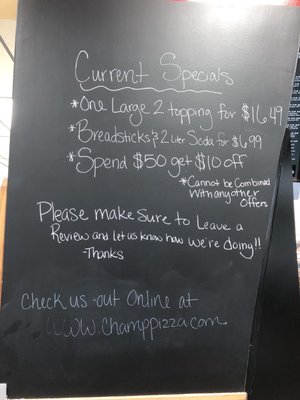 Current Specials
*One Large 2 topping for $16.49
*Breadsticks & 2 Liter Soda for $6.99
*Spend $50 get $10 off
*Cannot be Combined
with any other
Offers
Please make sure to Leave a
Review and let us know how we're doing!!
-Thanks
Check us -out Online at
www.champpizza.com